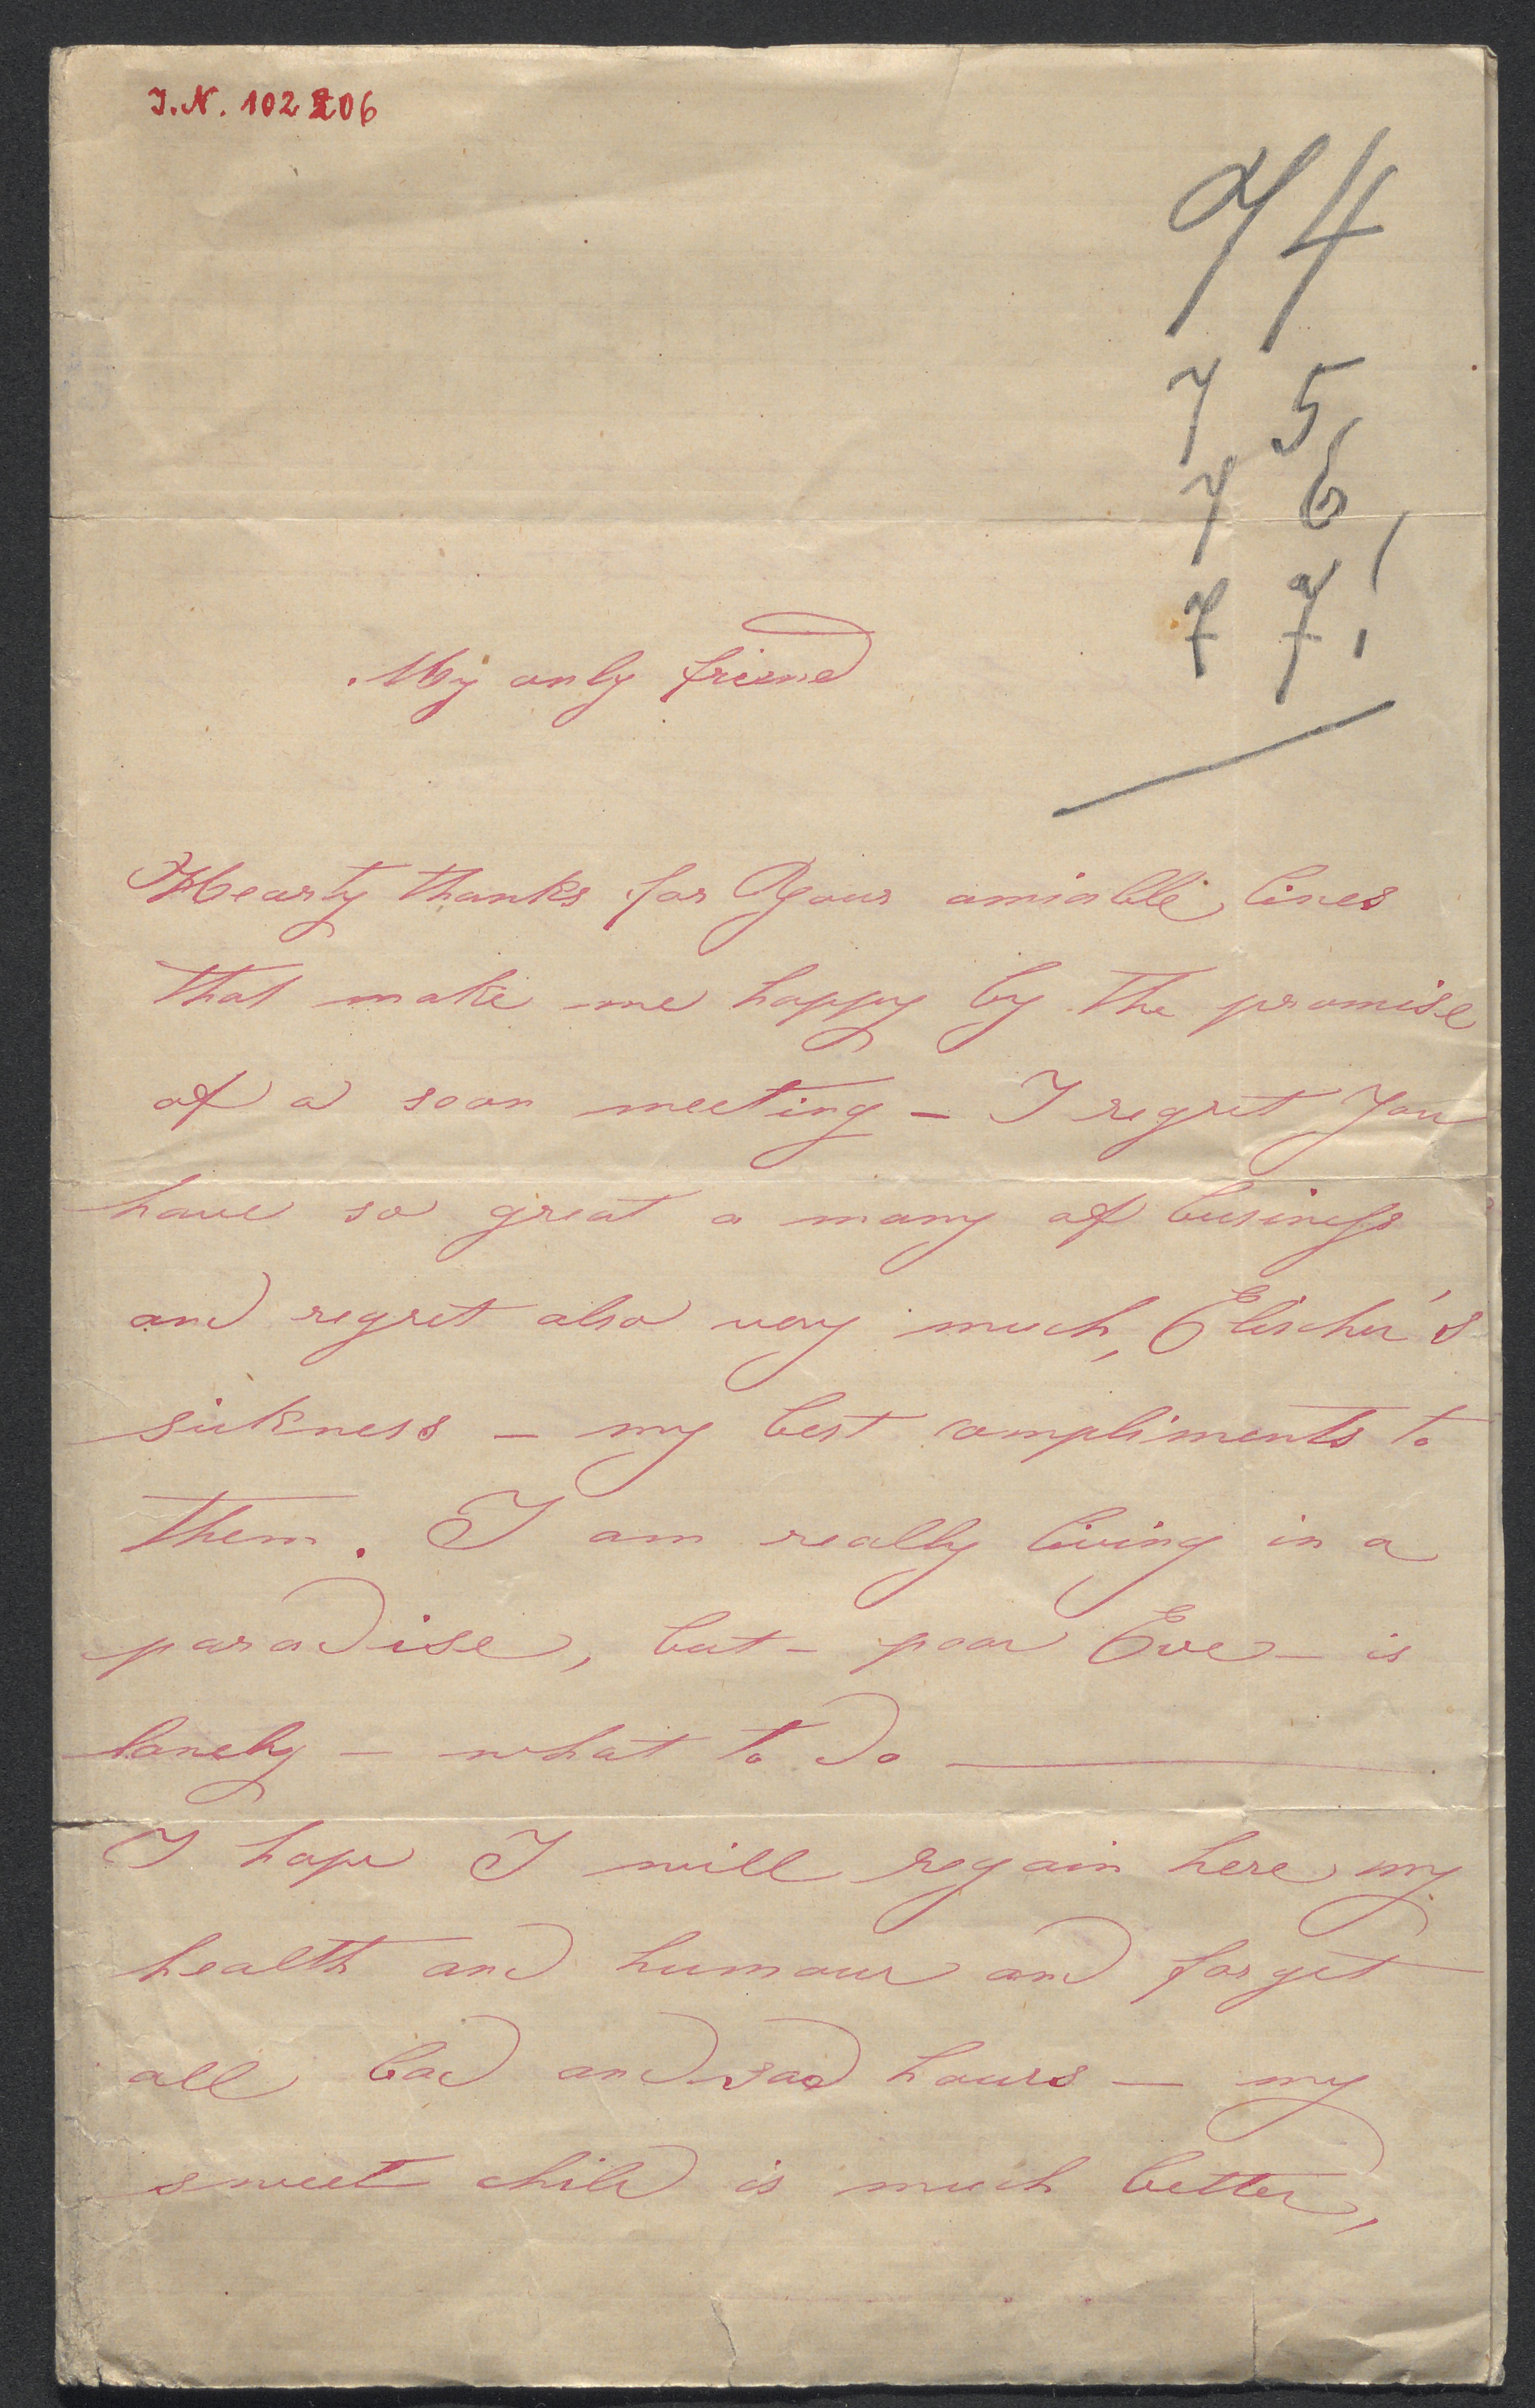 I.N. 102206
74
75
76
77!
My only friend
Hearty thanks for Your amiable lines
that make me happy by the promise
of a soon meeting – I regret You
have so great a many of business
and regret also very much, Elischer's
sickness – my best compliments to
them. I am really living in a
paradise, but – poor Eve – is
lonely – what to do —
I hope I will regain here my
health and humour and forget
all bad and sad hours – my
sweet child is much better,